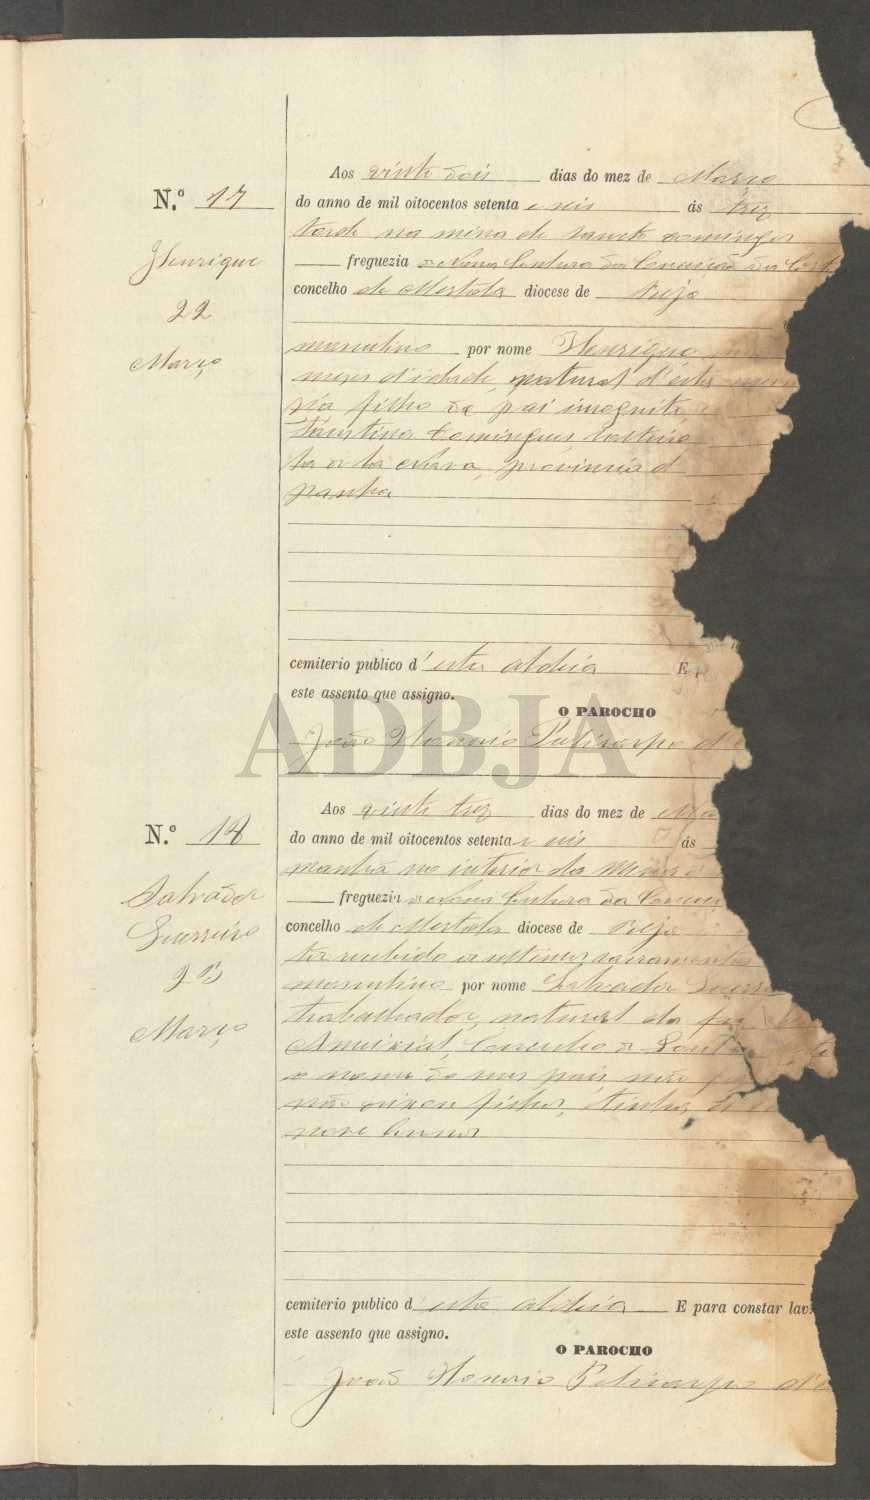 N.º 17
Henrique
22
Março
Aos vinte dois dias do mez de Março
do anno de mil oitocentos setenta e seis ás trez
tarde na mina de Sancto Domingos
freguezia de Nossa Senhora da Conceição da
concelho de Mertola diocese de Beja
masculino por nome Henrique
mezes d'idade, natural d'esta
filho de pai incognito
Faustina Domingues
provincia d
panha
cemiterio publico d'esta aldeia E p
este assento que assigno.
O PAROCHO
João Honorio Policarpo d'
N.º 18
Salvador
Guerreiro
23
Março
Aos vinte trez dias do mez de Ma
do anno de mil oitocentos setenta e seis ás
manhã no interior da Mina d
freguezia de Nossa Senhora da Concei
concelho de Mertola diocese de Beja
ter recebido os ultimos sacramentos
masculino por nome Salvador Guerr
trabalhador, natural da fre
Ameixial, Concelho de Loulé
o nome de seus pais, não
não deixou filhos, e tinha de
nove annos
cemiterio publico d'esta aldeia E para constar lav
este assento que assigno.
O PAROCHO
João Honorio Policarpo d'
ADBJA